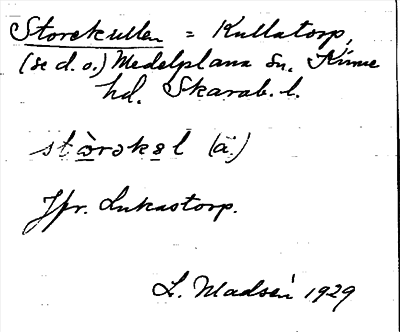 Storekullen = Kullatorp,
(se d. o.) Medelplana sn. Kinne
hd. Skarab. l.
stòrəkəl (ä.)
Jfr. Lukastorp.
L. Madsén 1929